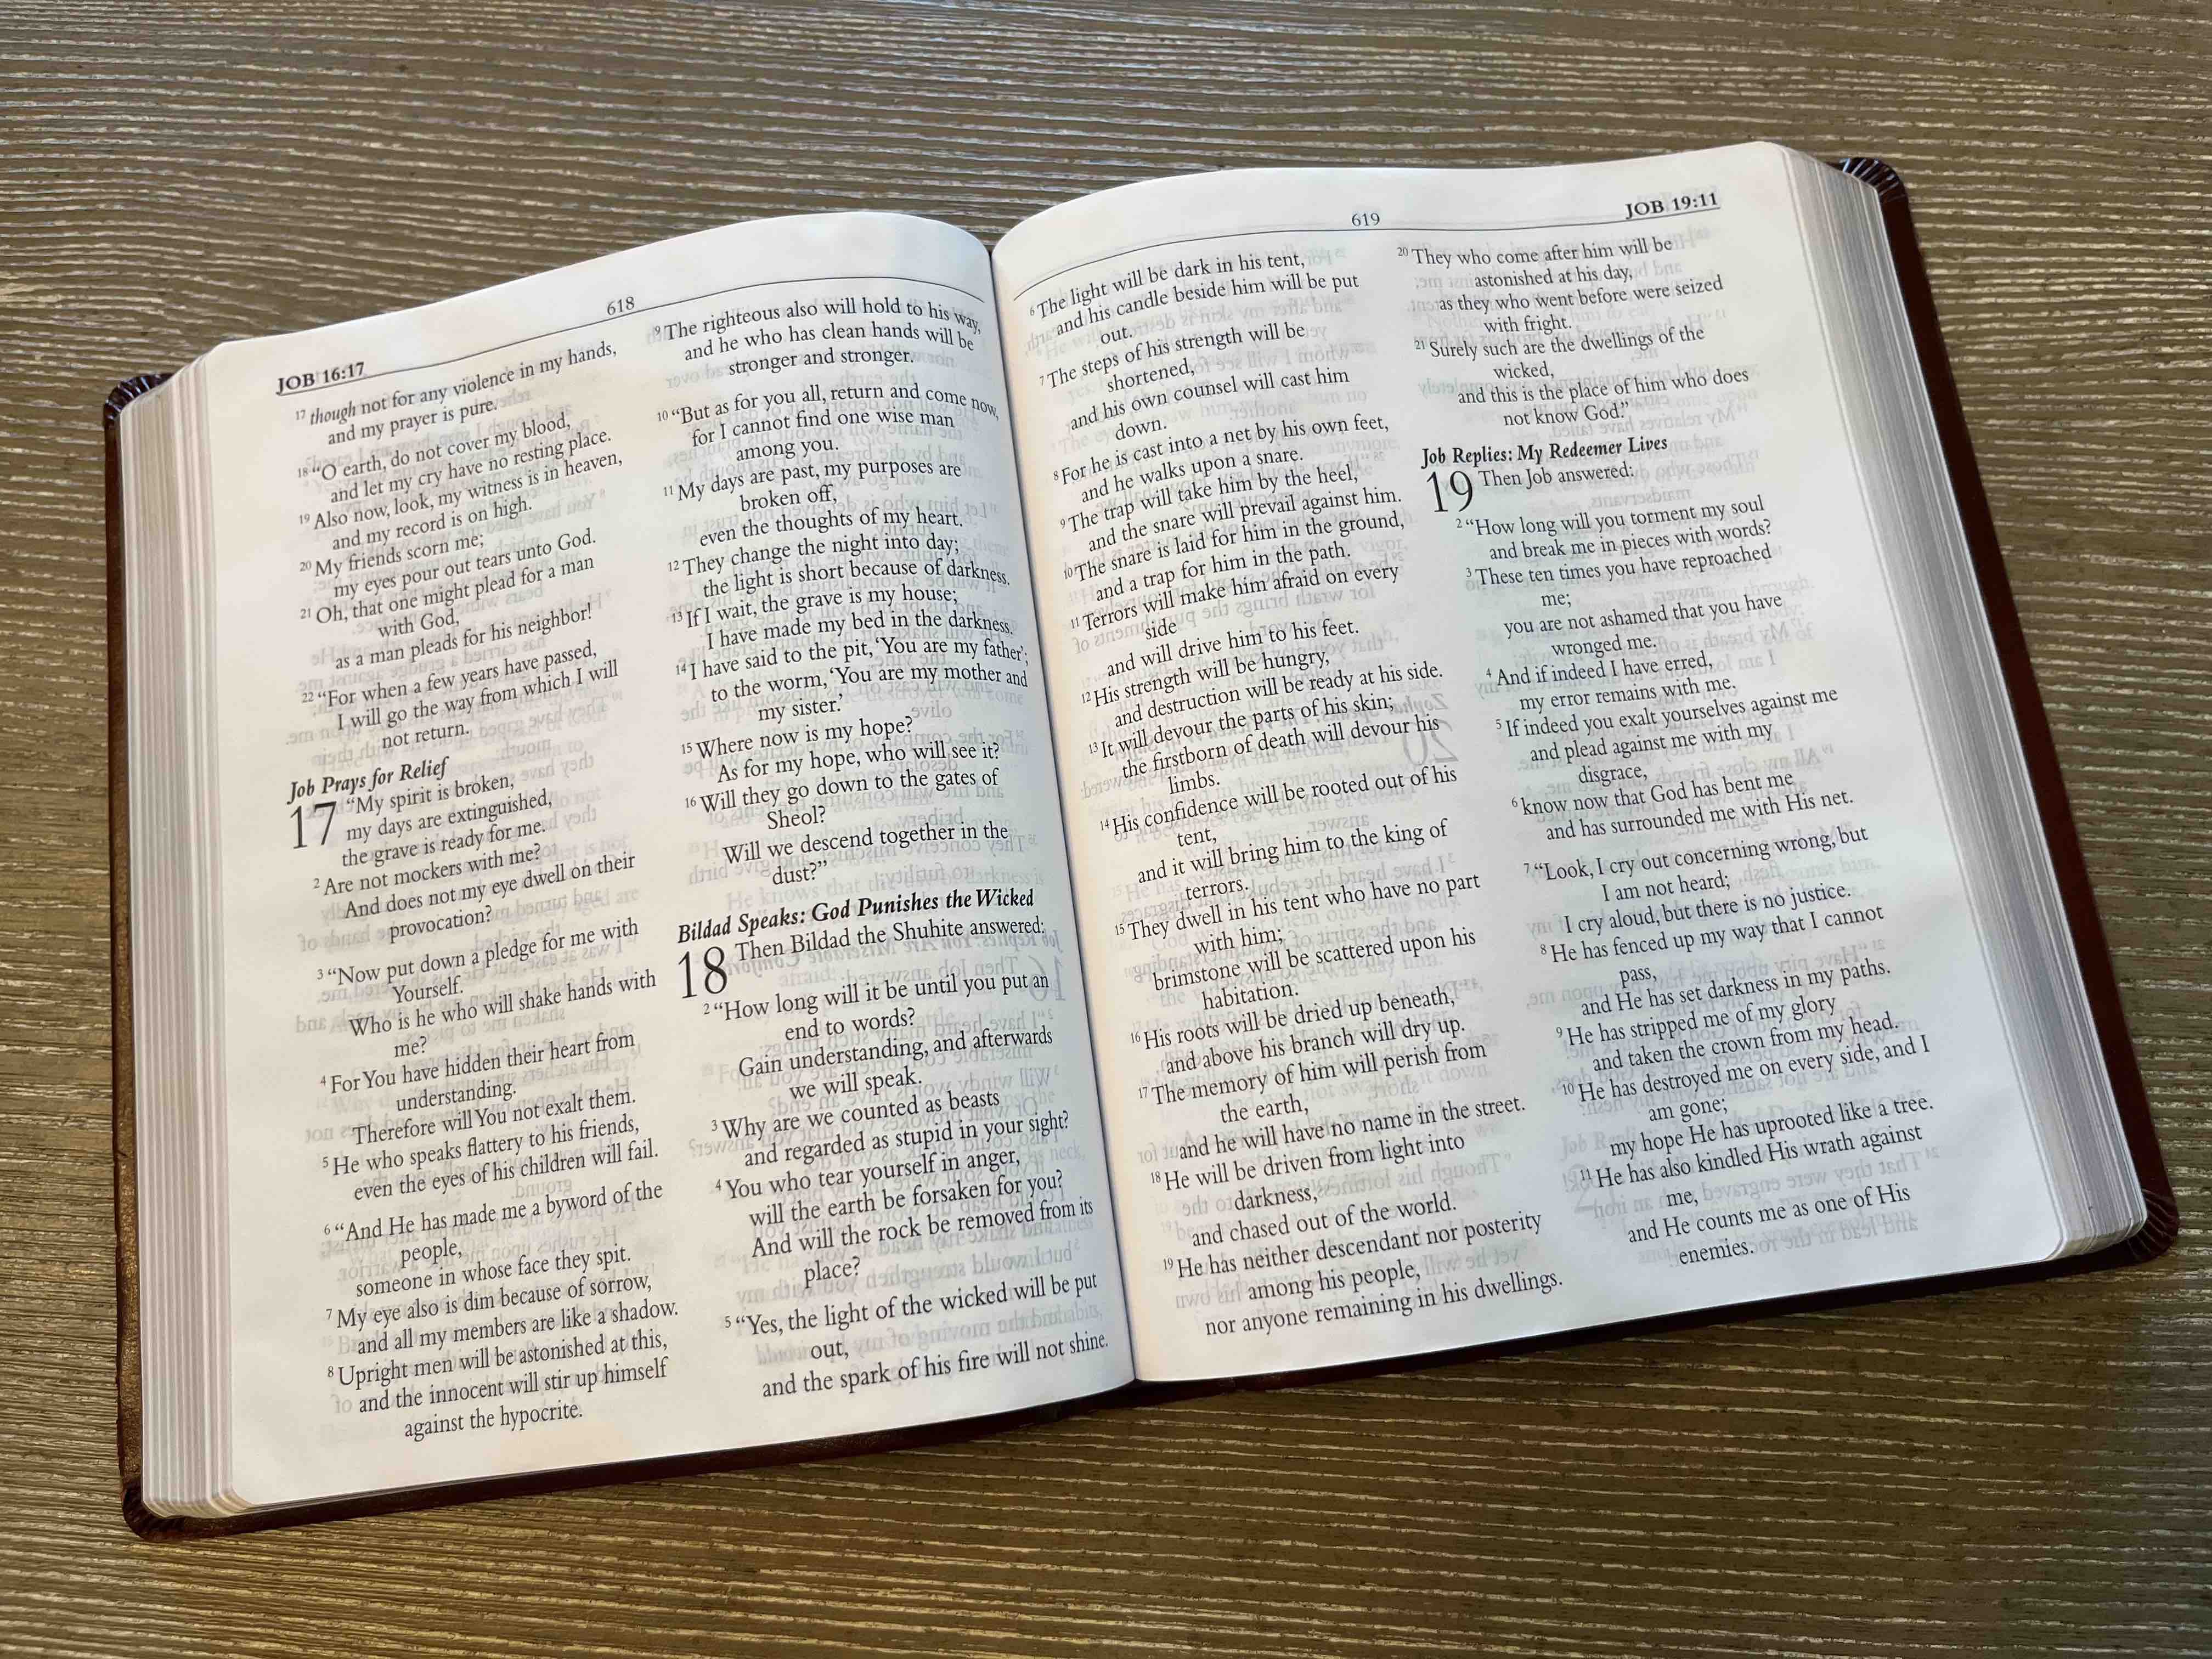 JOB 16:17
618
17 though not for any violence in my hands,
and my prayer is pure.
18 “O earth, do not cover my blood,
and let my cry have no resting place.
19 Also now, look, my witness is in heaven,
and my record is on high.
20 My friends scorn me;
my eyes pour out tears unto God.
21 Oh, that one might plead for a man
with God,
as a man pleads for his neighbor!
22 “For when a few years have passed,
I will go the way from which I will
not return.
Job Prays for Relief
17 “My spirit is broken,
my days are extinguished,
the grave is ready for me.
2 Are not mockers with me?
And does not my eye dwell on their
provocation?
3 “Now put down a pledge for me with
Yourself.
Who is he who will shake hands with
me?
4 For You have hidden their heart from
understanding.
Therefore will You not exalt them.
5 He who speaks flattery to his friends,
even the eyes of his children will fail.
6 “And He has made me a byword of the
people,
someone in whose face they spit.
7 My eye also is dim because of sorrow,
and all my members are like a shadow.
8 Upright men will be astonished at this,
and the innocent will stir up himself
against the hypocrite.
9 The righteous also will hold to his way,
and he who has clean hands will be
stronger and stronger.
10 “But as for you all, return and come now,
for I cannot find one wise man
among you.
11 My days are past, my purposes are
broken off,
even the thoughts of my heart.
12 They change the night into day;
the light is short because of darkness.
13 If I wait, the grave is my house;
I have made my bed in the darkness.
14 I have said to the pit, ‘You are my father’;
to the worm, ‘You are my mother and
my sister.’
15 Where now is my hope?
As for my hope, who will see it?
16 Will they go down to the gates of
Sheol?
Will we descend together in the
dust?”
Bildad Speaks: God Punishes the Wicked
18 Then Bildad the Shuhite answered:
2 “How long will it be until you put an
end to words?
Gain understanding, and afterwards
we will speak.
3 Why are we counted as beasts
and regarded as stupid in your sight?
4 You who tear yourself in anger,
will the earth be forsaken for you?
And will the rock be removed from its
place?
5 “Yes, the light of the wicked will be put
out,
and the spark of his fire will not shine.
619
JOB 19:11
6 The light will be dark in his tent,
and his candle beside him will be put
out.
7 The steps of his strength will be
shortened,
and his own counsel will cast him
down.
8 For he is cast into a net by his own feet,
and he walks upon a snare.
9 The trap will take him by the heel,
and the snare will prevail against him.
10 The snare is laid for him in the ground,
and a trap for him in the path.
11 Terrors will make him afraid on every
side
and will drive him to his feet.
12 His strength will be hungry,
and destruction will be ready at his side.
13 It will devour the parts of his skin;
the firstborn of death will devour his
limbs.
14 His confidence will be rooted out of his
tent,
and it will bring him to the king of
terrors.
15 They dwell in his tent who have no part
with him;
brimstone will be scattered upon his
habitation.
16 His roots will be dried up beneath,
and above his branch will dry up.
17 The memory of him will perish from
the earth,
and he will have no name in the street.
18 He will be driven from light into
darkness,
and chased out of the world.
19 He has neither descendant nor posterity
among his people,
nor anyone remaining in his dwellings.
20 They who come after him will be
astonished at his day,
as they who went before were seized
with fright.
21 Surely such are the dwellings of the
wicked,
and this is the place of him who does
not know God.”
Job Replies: My Redeemer Lives
19 Then Job answered:
2 “How long will you torment my soul
and break me in pieces with words?
3 These ten times you have reproached
me;
you are not ashamed that you have
wronged me.
4 And if indeed I have erred,
my error remains with me.
5 If indeed you exalt yourselves against me
and plead against me with my
disgrace,
6 know now that God has bent me
and has surrounded me with His net.
7 “Look, I cry out concerning wrong, but
I am not heard;
I cry aloud, but there is no justice.
8 He has fenced up my way that I cannot
pass,
and He has set darkness in my paths.
9 He has stripped me of my glory
and taken the crown from my head.
10 He has destroyed me on every side, and I
am gone;
my hope He has uprooted like a tree.
11 He has also kindled His wrath against
me,
and He counts me as one of His
enemies.